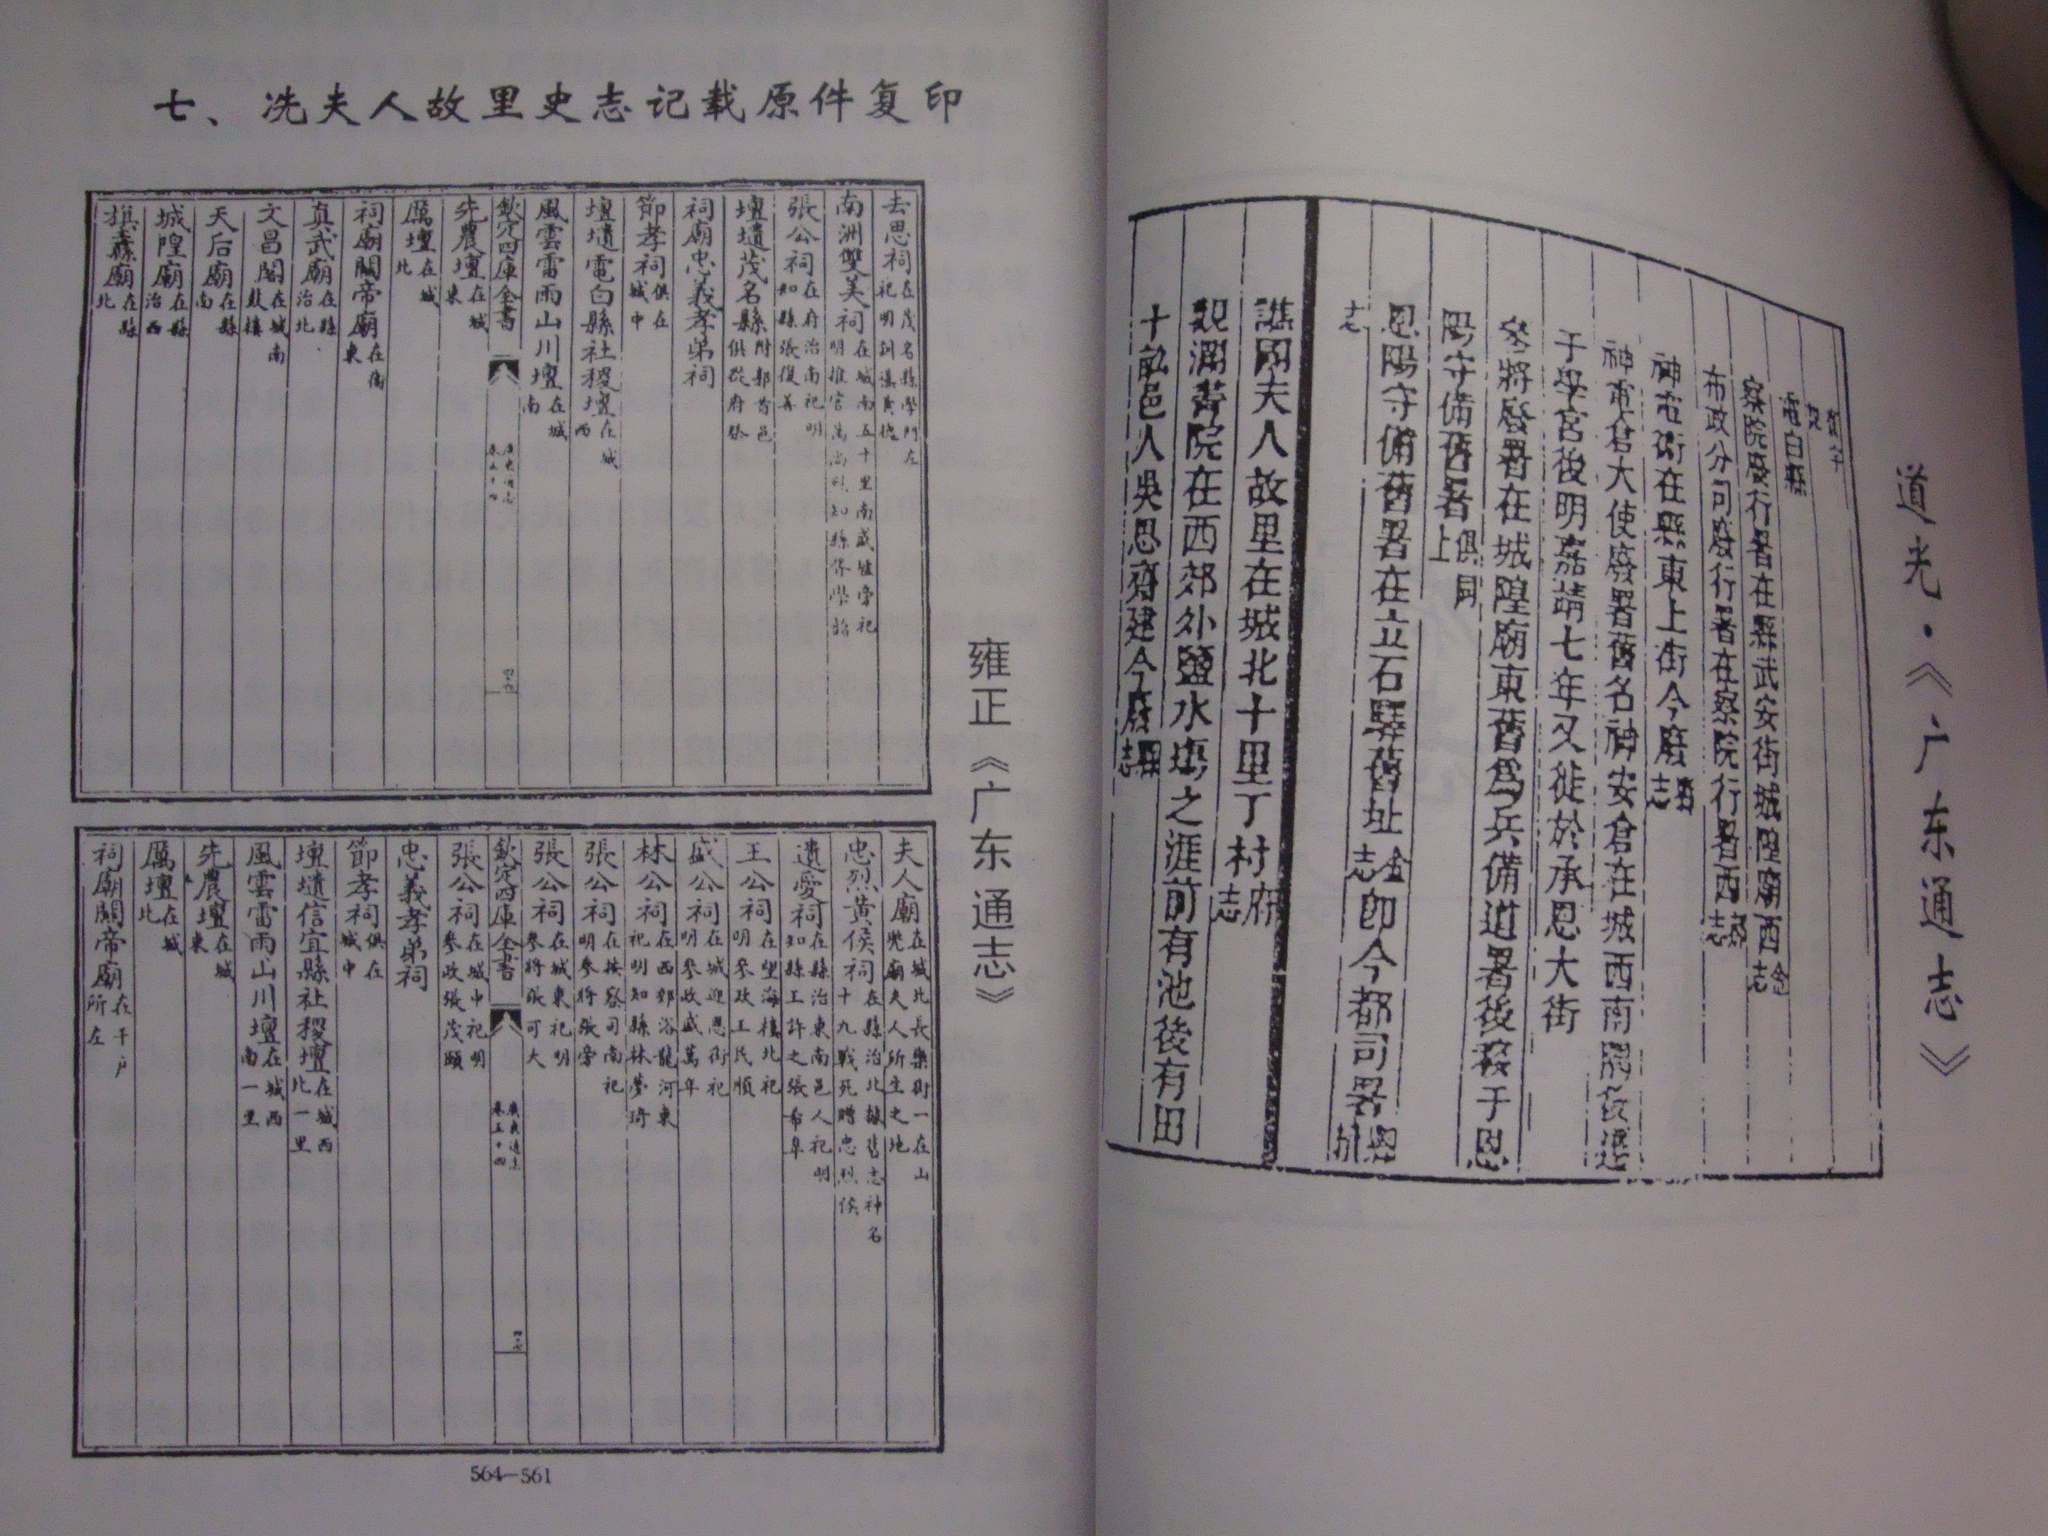 七、冼夫人故里史志记载原件复印
去思祠在茂名縣學門左祀明訓導黄德
南洲雙美祠在城南五十里南盛墟旁祀明推官
張公祠在府治南祀明知縣張復普
壇壝茂名縣附郭首邑俱從府祭
祠廟忠義孝弟祠
節孝祠俱在城中
壇壝電白縣社稷壇在城西
風雲雷雨山川壇在城南
欽定四庫全書
廣東通志
卷五十四
先農壇在城東
厲壇在城北
祠廟關帝廟在衛東
真武廟在縣治北
文昌閣在城南鼓樓
天后廟在縣南
城隍廟在縣治西
旗纛廟在縣北
夫人廟在城北長樂街一在山兜廟夫人所生之地
忠烈黄侯祠在縣治北據舊志神名十九戰死贈忠烈侯
遺愛祠在縣治東南邑人祀明知縣王許之張希皋
王公祠在望海樓北祀明參政王民順
盛公祠在城迎恩街祀明參政盛萬年
林公祠在西郊浴龍河東祀明知縣林夢琦
張公祠在按察司南祀明參將張
張公祠在城東祀明參將張可大
欽定四庫全書
廣東通志
卷五十四
張公祠在城中祀明參政張茂頤
忠義孝弟祠
節孝祠俱在城中
壇壝信宜縣社稷壇在城西北一里
風雲雷雨山川壇在城西南一里
先農壇在城東
厲壇在城北
祠廟關帝廟在千户所左
雍正《广东通志》
564—561
電白縣
察院廢行署在縣武安街城隍廟西金志
布政分司廢行署在察院行署西
神電衛在縣東上街今廢
神電倉大使廢署舊名神安倉在城西南隅後遷
于學宮後明嘉靖七年又徙於承恩大街
參將廢署在城隍廟東舊爲兵備道署後移于恩
陽守備舊署俱同上
恩陽守備舊署在立石驛舊址金志即今都司署
志
譙國夫人故里在城北十里丁村府志
觀瀾書院在西郊外鹽水塘之涯前有池後有田
十畝邑人吳思齊建今廢縣志
道光·《广东通志》